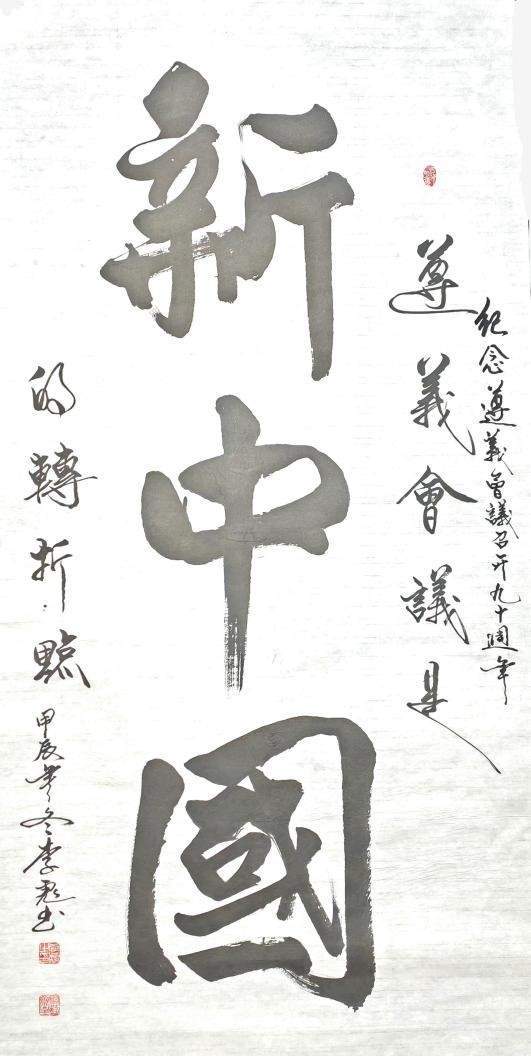 紀念遵義會議召开九十週年
遵義會議是
新中國
的轉折點
甲辰年冬李彪书